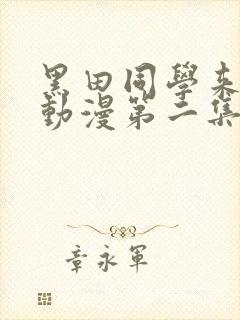 黑田同學來
動漫第二集
章永軍